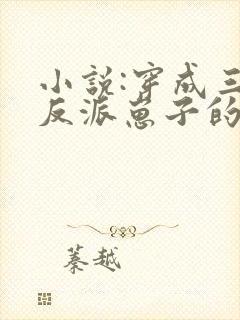 小说:穿成三
反派崽子的
蓁越